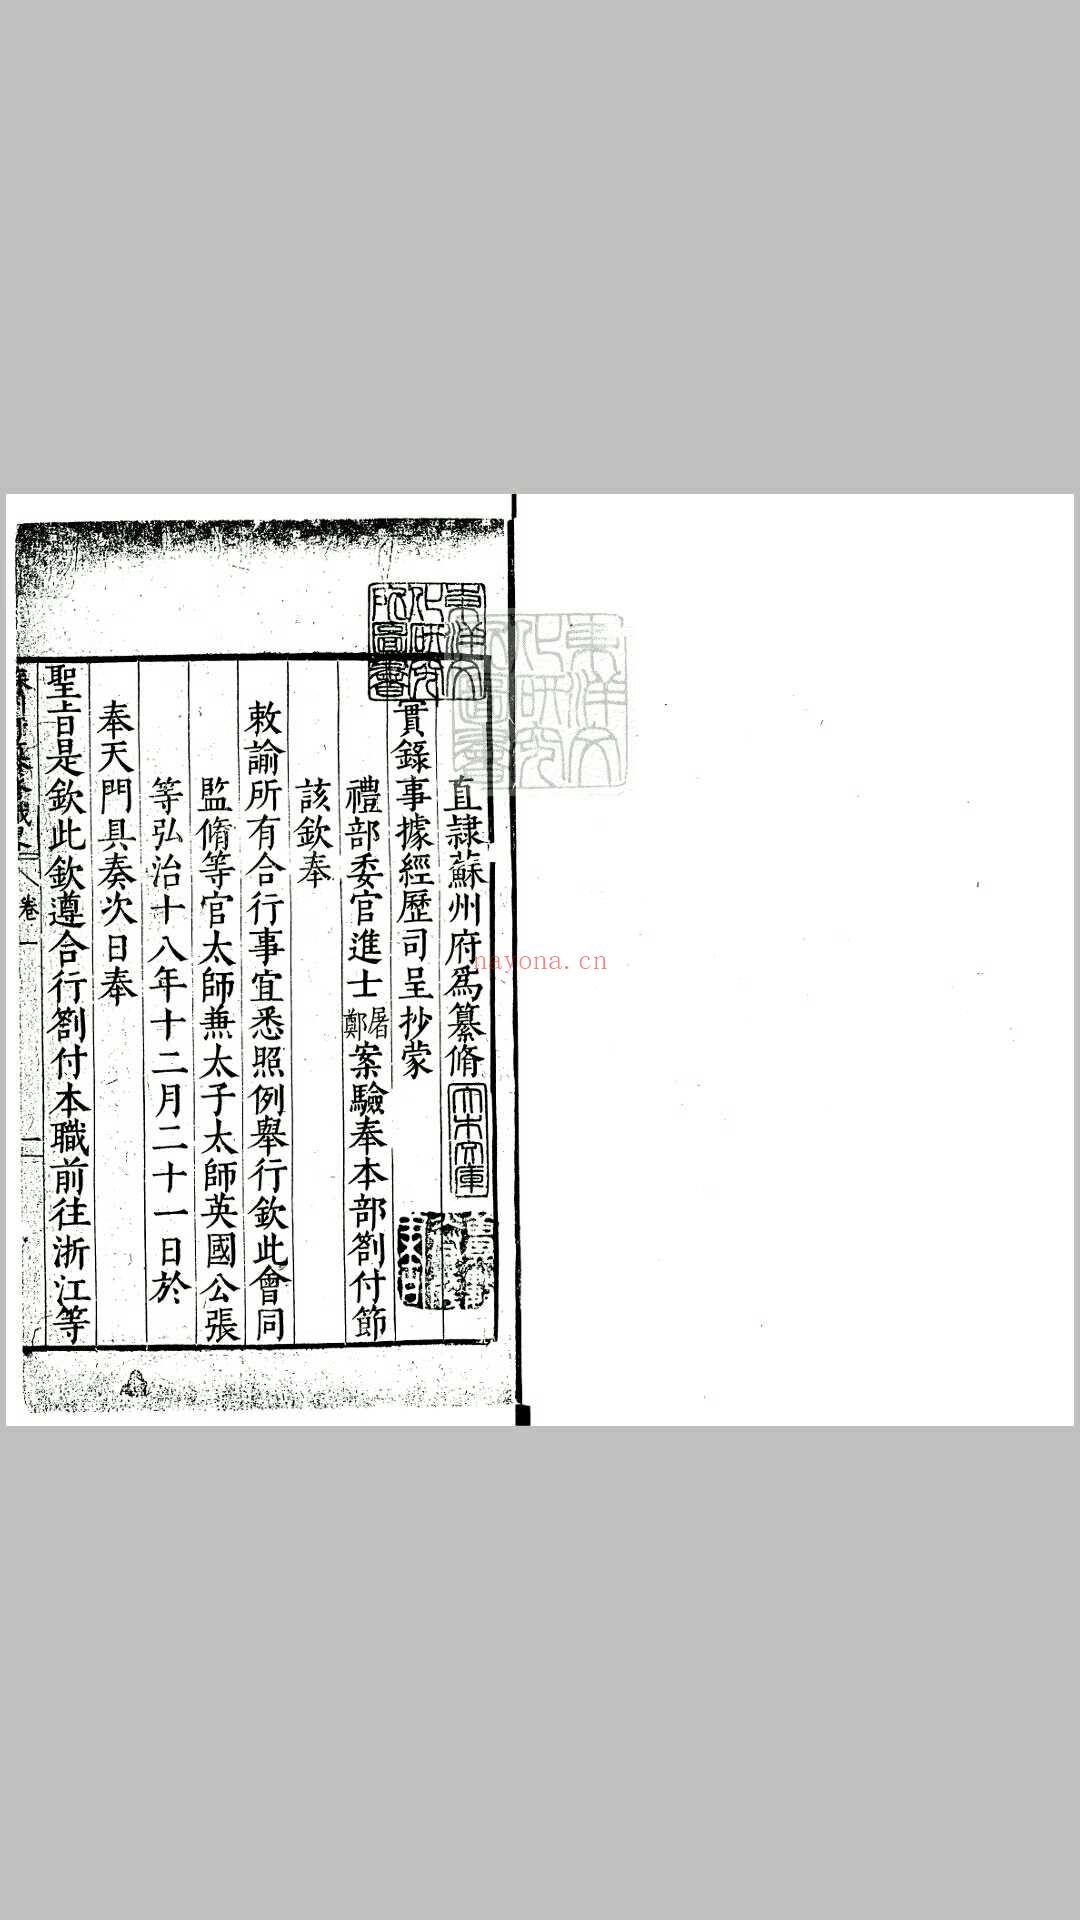 直隸蘇州府爲纂脩
實錄事據經歷司呈抄蒙
禮部委官進士屠鄭案驗奉本部劄付節
該欽奉
敕諭所有合行事宜悉照例舉行欽此會同
監脩等官太師兼太子太師英國公張
等弘治十八年十二月二十一日於
奉天門具奏次日奉
聖旨是欽此欽遵合行劄付本職前往浙江等
卷一
一
東洋文化研究所圖書
大木文庫
nayona.cn